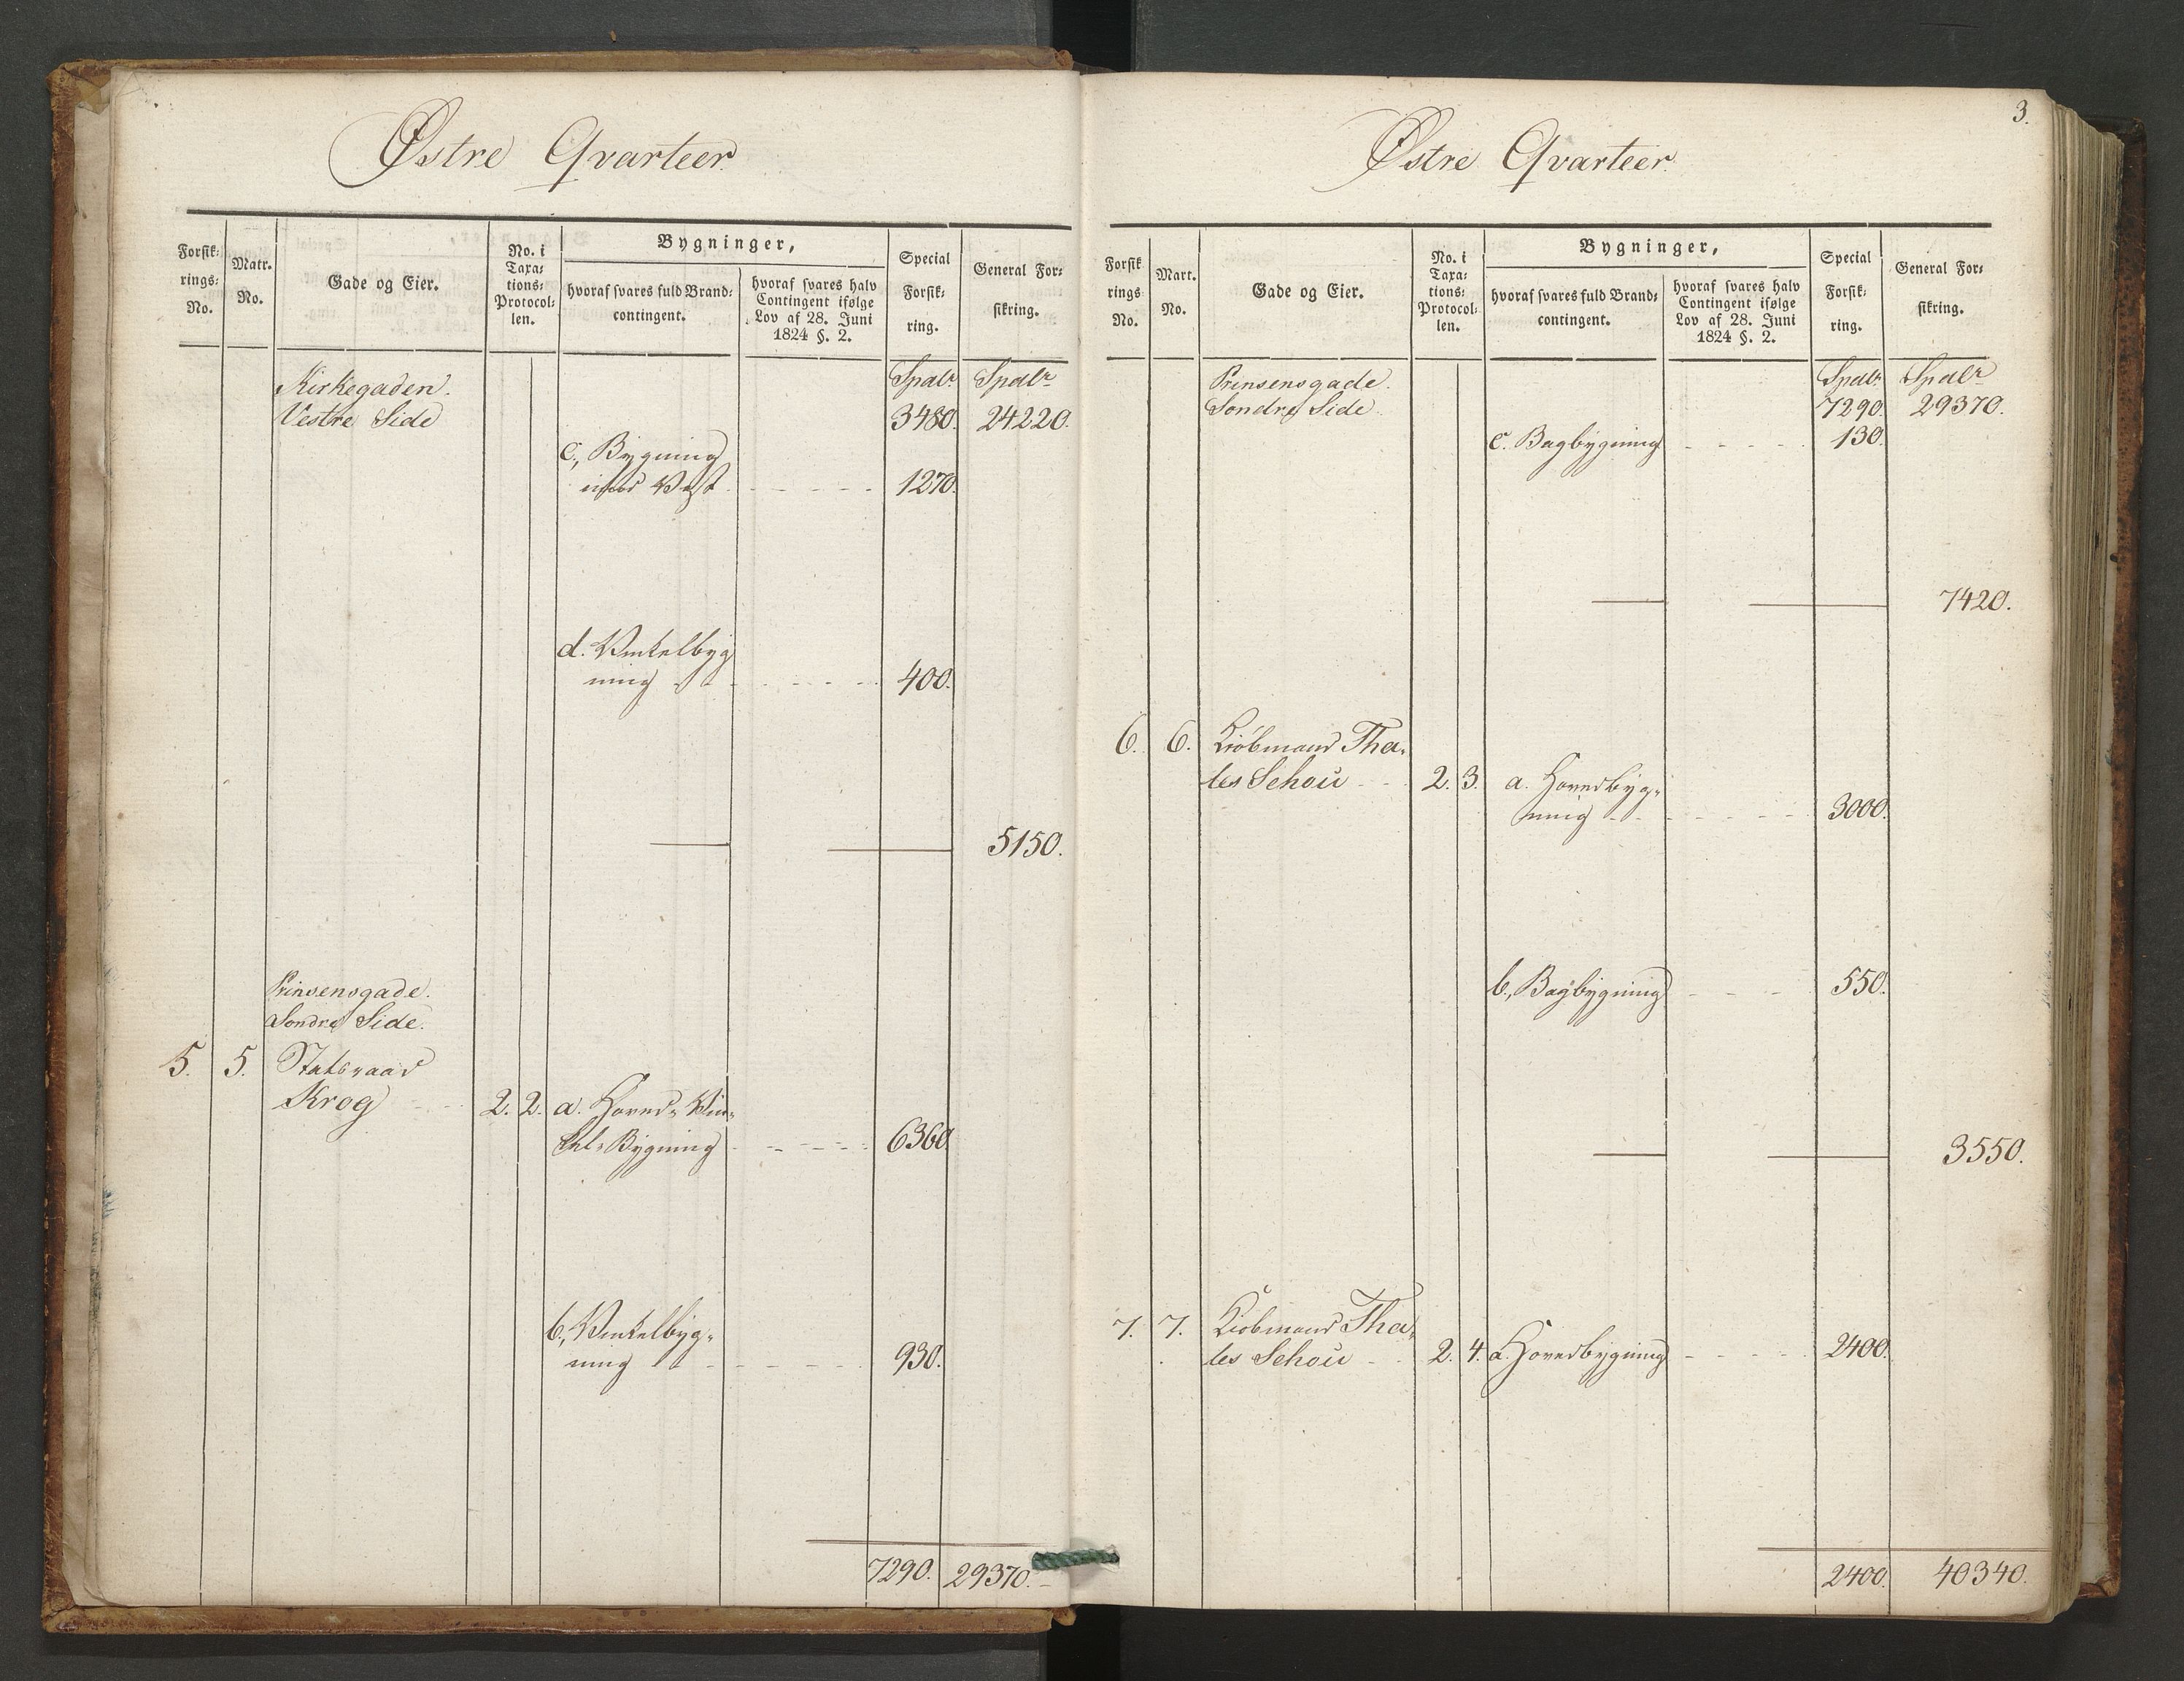 Østre Qvarteer.
Forsik-
rings-
No.
Matr.
No.
Gade og Eier.
No. i
Taxa-
tions-
Protocol-
len.
Bygninger,
hvoraf svares fuld Brand-
contingent.
hvoraf svares halv
Contingent ifølge
Lov af 28. Juni
1824 §. 2.
Special
Forsik-
ring.
General For-
sikring.
Kirkegaden. Spdlr Spdlr
Vestre Side 3480. 24220.
c, Bygning
imod Vest 1270.
d. Vinkelbyg
ning 400.
5150.
Prinsensgade.
Søndre Side.
5. 5. Statsraad
Krog 2. 2. a. Hoved- Vin-
kel-Bygning 6360.
b, Vinkelbyg-
ning 930.
7290. 29370.
3.
Østre Qvarteer.
Forsik
rings
No.
Mart.
No.
Gade og Eier.
No. i
Taxa-
tions-
Protocol-
len.
Bygninger,
hvoraf svares fuld Brand-
contingent.
hvoraf svares halv
Contingent ifølge
Lov af 28. Juni
1824 §. 2.
Special
Forsik-
ring.
General For-
sikring.
Prinsensgade. Spdlr Spdlr
Søndre Side 7290. 29370.
c. Bagbygning 130.
7420.
6. 6. Kiöbmand Tha-
les Schou 2. 3. a. Hovedbyg-
ning 3000.
b, Bagbygning 550.
3550.
7. 7. Kiöbmand Tha-
les Schou 2. 4. a. Hovedbygning 2400.
2400. 40340.